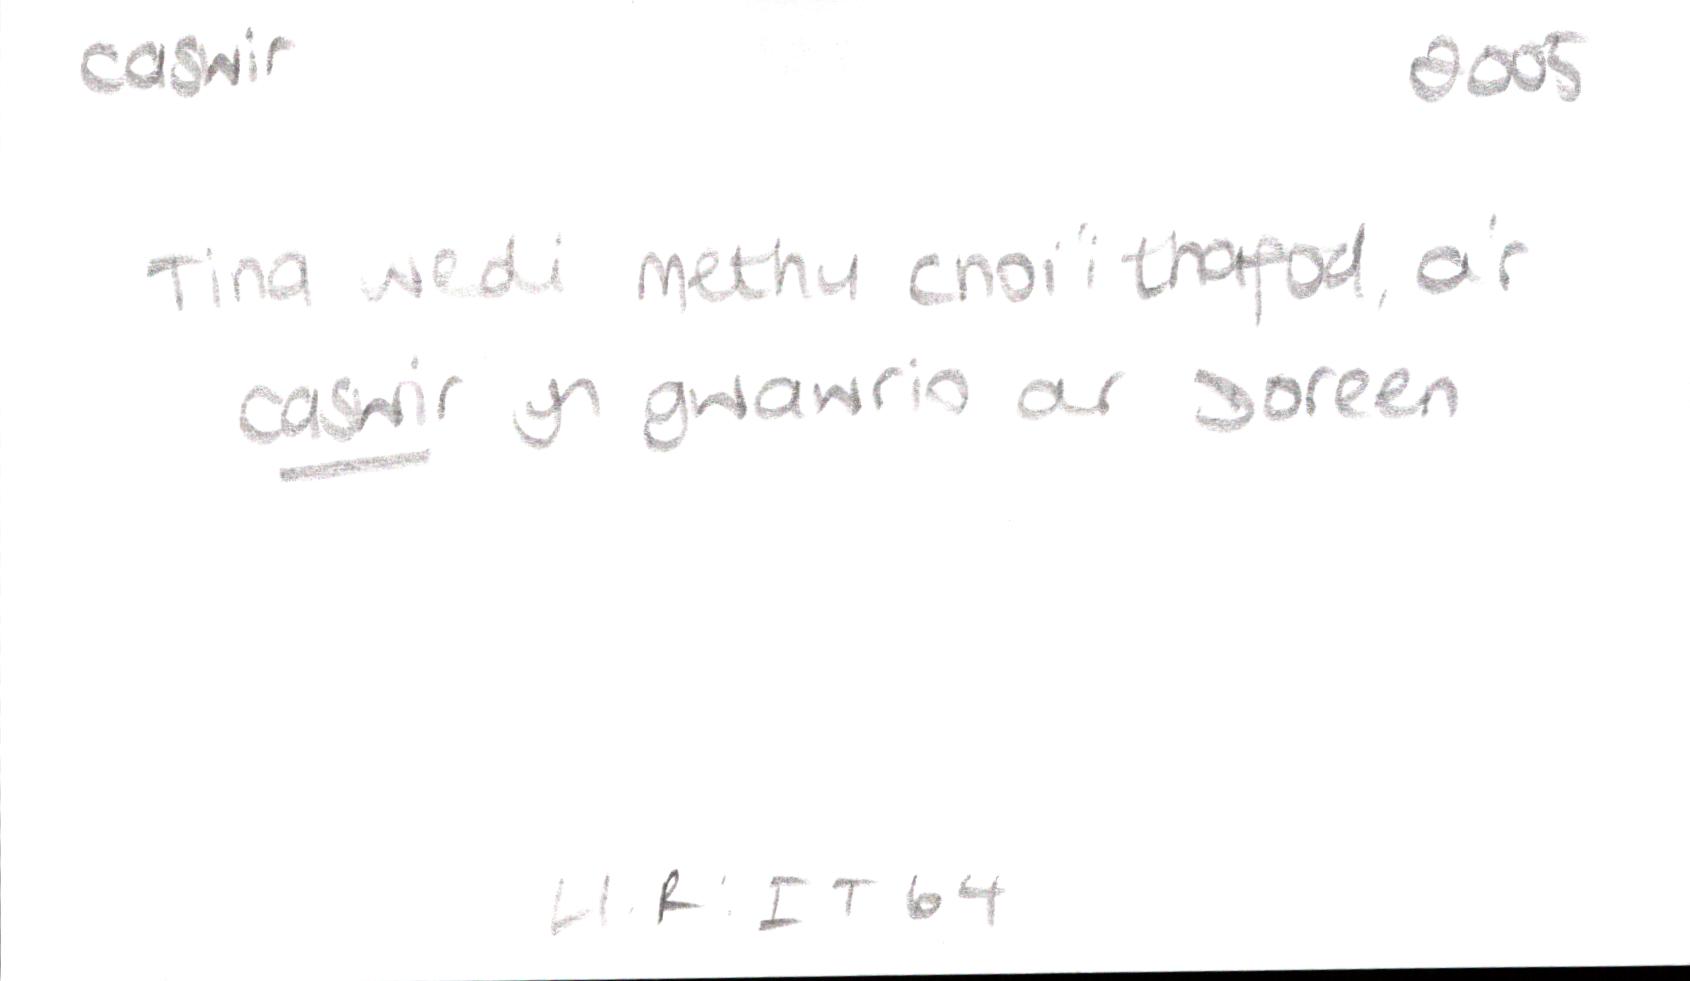 caswir 2005
Tina wedi methu cnoi'i thafod, a'r
caswir yn gwawrio ar Doreen
Ll.R: IT 64